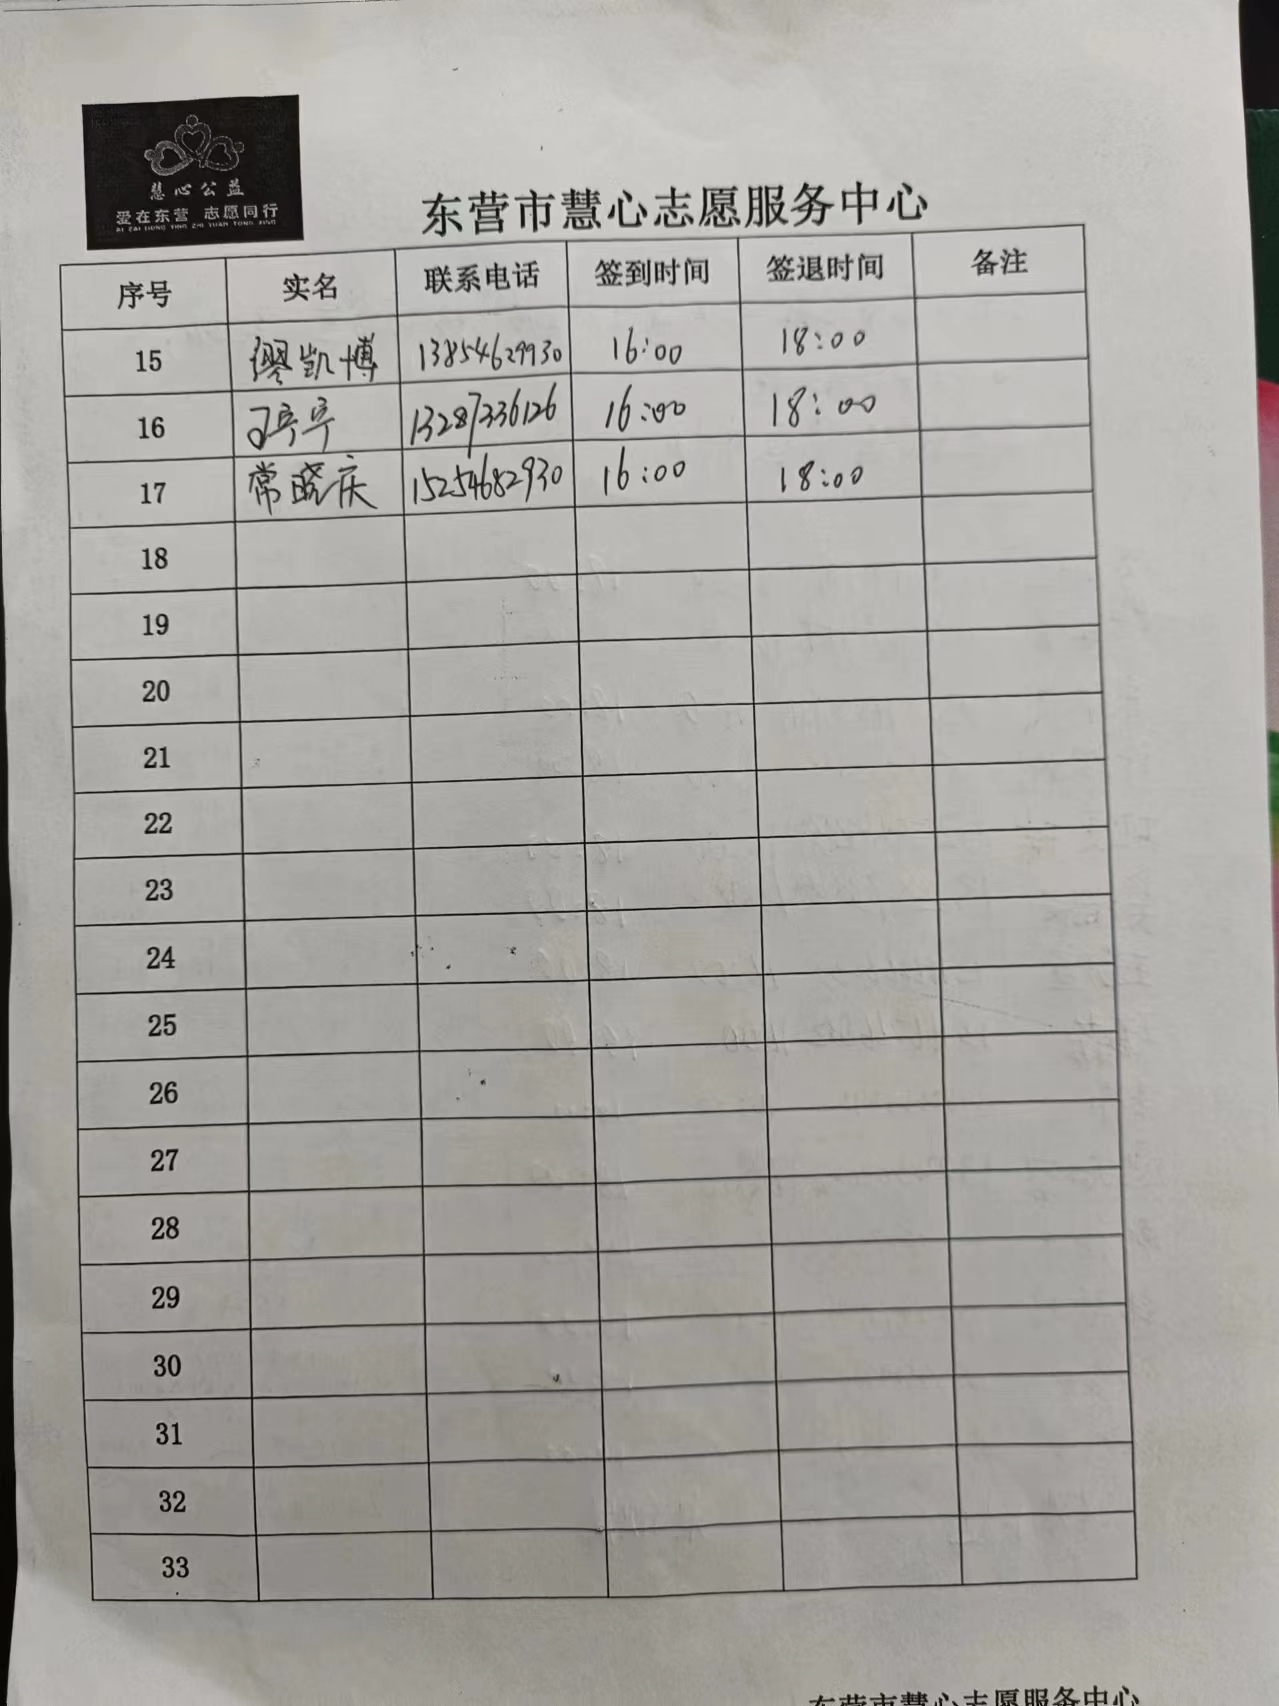 慧心公益
爱在东营 志愿同行
AI ZAI DONG YING ZHI YUAN TONG XING
东营市慧心志愿服务中心
序号 实名 联系电话 签到时间 签退时间 备注
15 缪凯博 13854629930 16:00 18:00
16 王亭亭 13287336126 16:00 18:00
17 常晓庆 15254682930 16:00 18:00
18
19
20
21
22
23
24
25
26
27
28
29
30
31
32
33
东营市慧心志愿服务中心